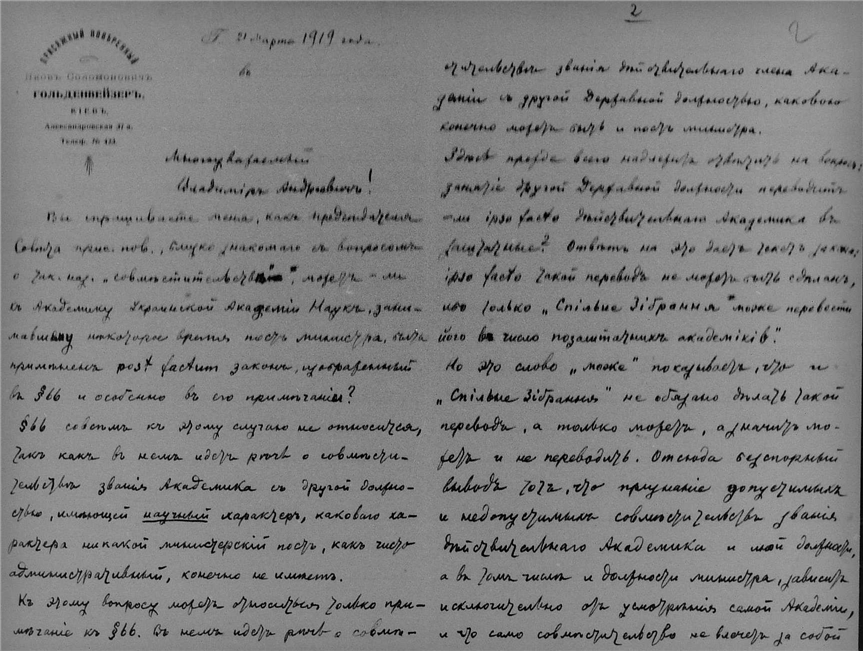 ПРИСЯЖНЫЙ ПОВѢРЕННЫЙ
ЯКОВЪ СОЛОМОНОВИЧЪ
ГОЛЬДЕНВЕЙЗЕРЪ,
КІЕВЪ,
Александровская 37а.
Телеф. № 423.
21 Марта 1919 года.
Многоуважаемый
Владиміръ Андреевичъ!
Вы спрашиваете меня, какъ предсѣдателя
Совѣта прис. пов., близко знакомаго съ вопросомъ
о так. наз. „совмѣстительствѣ", можетъ-ли
къ Академику Украинской Академіи Наукъ, зани-
мавшему нѣкоторое время постъ министра, быть
примѣненъ post factum законъ, изображенный
въ §66 и особенно въ его примѣчаніи?
§66 совсѣмъ къ этому случаю не относится,
такъ какъ въ немъ идетъ рѣчь о совмѣсти-
тельствѣ званія Академика съ другой должно-
стью, имѣющей научный характеръ, каковаго ха-
рактера никакой министерскій постъ, какъ чисто
административный, конечно не имѣетъ.
Къ этому вопросу можетъ относиться только при-
мѣчаніе къ §66. Въ немъ идетъ рѣчь о совмѣ-
2
2
стительствѣ званія дѣйствительнаго члена Ака-
деміи съ другой Державной должностью, каковою
конечно можетъ быть и постъ министра.
Здѣсь прежде всего надлежитъ отвѣтить на вопросъ:
занятіе другой Державной должности переводитъ
-ли ipso facto дѣйствительнаго Академика въ
заштатные? Отвѣтъ на это даетъ текстъ закона:
ipso facto такой переводъ не можетъ быть сдѣланъ,
ибо только „Спільне Зібрання" може перевести
його в число позаштатних академіків".
Но это слово „може" показываетъ, что и
„Спільне Зібрання" не обязано дѣлать такой
переводъ, а только можетъ, а значитъ мо-
жетъ и не переводить. Отсюда безспорный
выводъ тотъ, что признаніе допустимыхъ
и недопустимыхъ совмѣстительствъ званія
дѣйствительнаго Академика и той должности,
а въ томъ числѣ и должности министра, зависитъ
исключительно отъ усмотрѣнія самой Академіи,
и что само совмѣстительство не влечетъ за собой